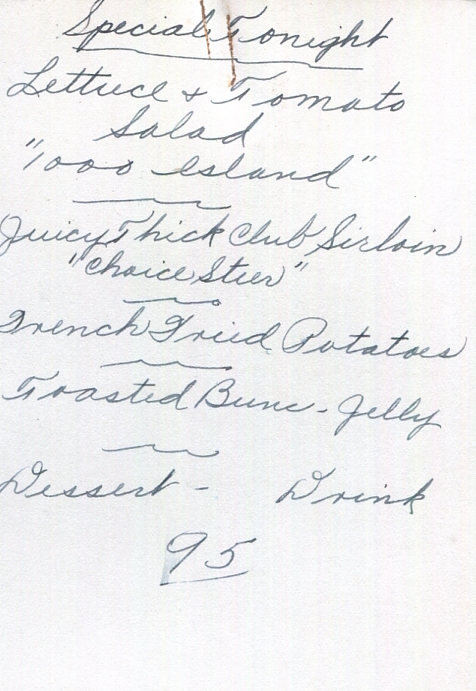 Special Tonight
Lettuce & Tomato
Salad
"1000 Island"
Juicy Thick Club Sirloin
"Choice Steer"
French Fried Potatoes
Toasted Bunc - Jelly
Dessert - Drink
95